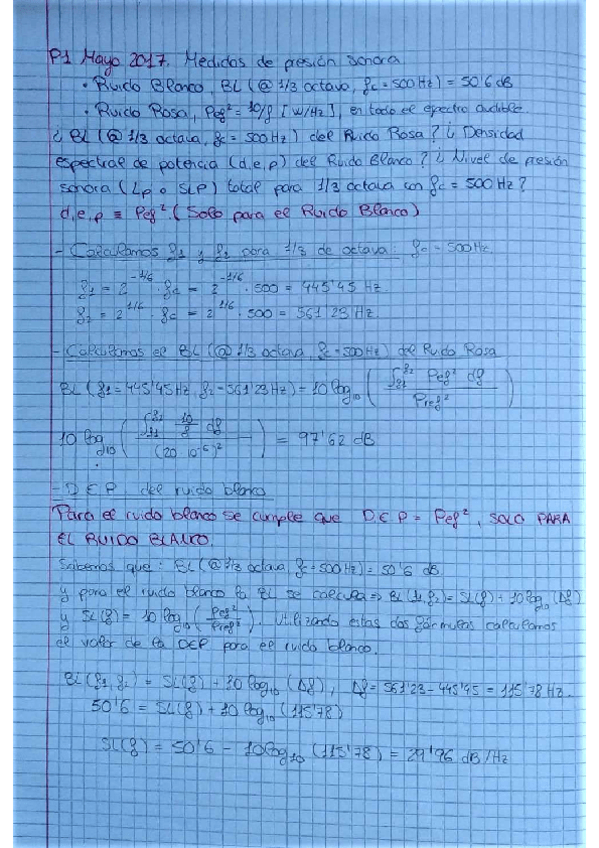 P1 Mayo 2017. Medidas de presión sonora
• Ruido Blanco, BL (@ 1/3 octava, fc = 500 Hz) = 50'6 dB
• Ruido Rosa, Pef² = 10/f [W/Hz], en todo el espectro audible.
¿BL (@ 1/3 octava, fc = 500 Hz) del Ruido Rosa? ¿Densidad
espectral de potencia (d.e.p) del Ruido Blanco? ¿Nivel de presión
sonora (Lp o SLP) total para 1/3 octava con fc = 500 Hz?
d.e.p ≡ Pef² (Solo para el Ruido Blanco)
- Calculamos f1 y f2 para 1/3 de octava: fc = 500 Hz
f1 = 2^-1/6 · fc = 2^-1/6 · 500 = 445'45 Hz
f2 = 2^1/6 · fc = 2^1/6 · 500 = 561'23 Hz
- Calculamos el BL (@ 1/3 octava, fc = 500 Hz) del Ruido Rosa
BL (f1 = 445'45 Hz, f2 = 561'23 Hz) = 10 log10 ( ∫f1^f2 Pef² df / Pref² )
10 log10 ( ∫f1^f2 10/f df / (20·10^-6)² ) = 97'62 dB
- D E P del ruido blanco
Para el ruido blanco se cumple que D.E.P = Pef², SOLO PARA
EL RUIDO BLANCO.
Sabemos que: BL (@ 1/3 octava, fc = 500 Hz) = 50'6 dB
y para el ruido blanco la BL se calcula ⇒ BL (f1, f2) = SL(f) + 10 log10 (Δf)
y SL(f) = 10 log10 ( Pef² / Pref² ). Utilizando estas dos fórmulas calculamos
el valor de la DEP para el ruido blanco.
BL (f1, f2) = SL(f) + 10 log10 (Δf), Δf = 561'23 - 445'45 = 115'78 Hz.
50'6 = SL(f) + 10 log10 (115'78)
SL(f) = 50'6 - 10 log10 (115'78) = 29'96 dB/Hz